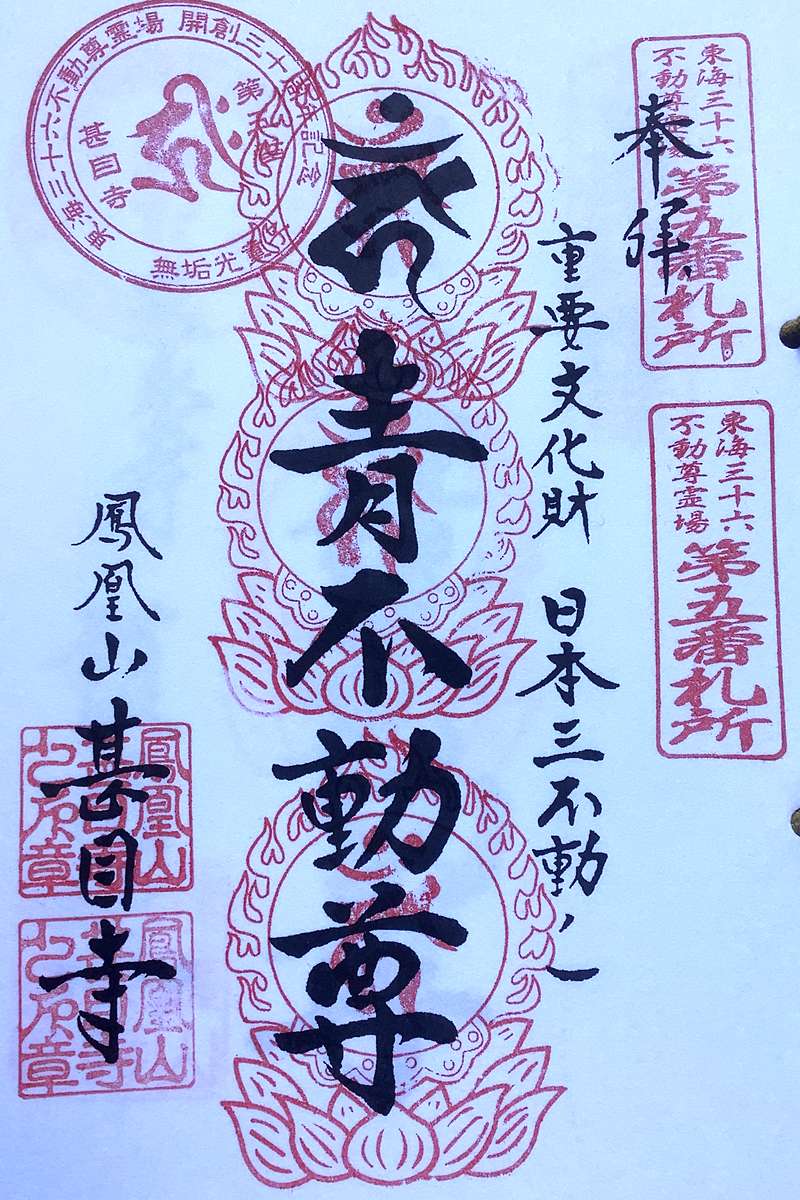 東海三十六
不動尊霊場
第五番札所
奉拝
東海三十六
不動尊霊場
第五番札所
重要文化財 日本三不動ノ一
青不動尊
東海三十六不動尊霊場 開創三十周年記念
甚目寺
無垢光
鳳凰山 甚目寺
鳳凰山
鳳凰山